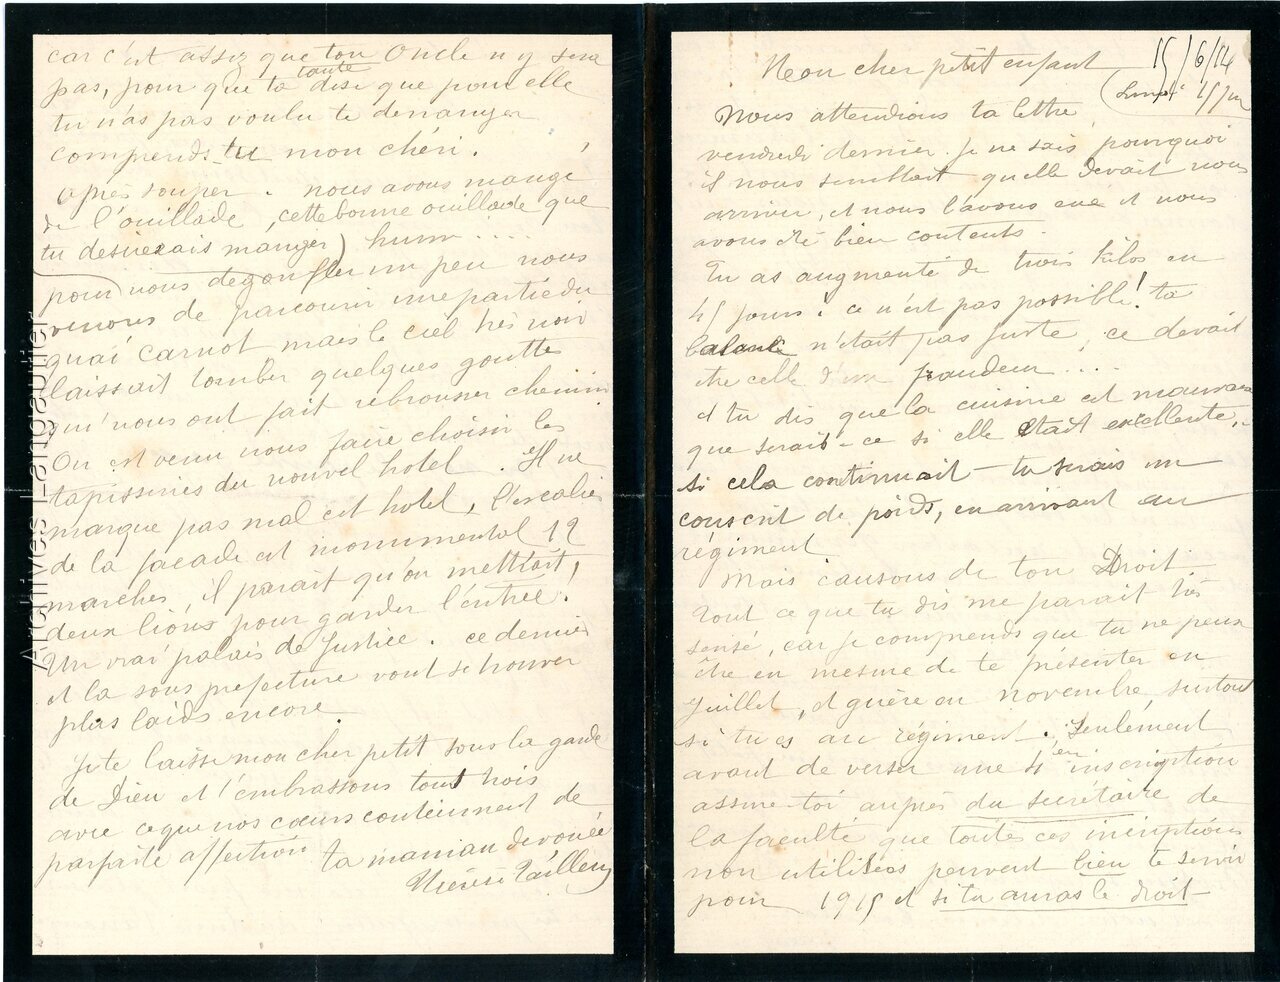 Mon cher petit enfant 15/6/14
(Lundi 15 juin
Nous attendions ta lettre
vendredi dernier. Je ne sais pourquoi
il nous semblait qu'elle devait nous
arriver, et nous l'avons eue et nous
avons été bien contents.
Tu as augmenté de trois kilos en
45 jours! ce n'est pas possible! ta
balance n'était pas juste, ce devait
être celle d'un fraudeur....
et tu dis que la cuisine est mauvaise
que serait-ce si elle était excellente,
si cela continuait tu serais un
conscrit de poids, en arrivant au
régiment
Mais causons de ton Droit
Tout ce que tu dis me parait très
sensé, car je comprends que tu ne peux
être en mesure de te présenter en
Juillet, et guère en novembre, surtout
si tu es au régiment. Seulement
avant de verser une 4eme inscription
assure-toi auprès du secrétaire de
la faculté que toutes ces incriptions
non utilisées peuvent bien te servir
pour 1915 et si tu auras le droit
car c'est assez que ton Oncle n'y sera
pas, pour que ta tante dise que pour elle
tu n'as pas voulu te déranger
comprends-tu mon chéri.
Après souper. nous avons mangé
de l'ouillade, cette bonne ouillade que
tu desirerais manger) hum....
pour nous dégonfler un peu nous
venons de parcourir une partie du
quai Carnot mais le ciel très noir
laissait tomber quelques gouttes
qui nous ont fait rebrousser chemin.
On est venu nous faire choisir les
tapisseries du nouvel hotel. Il ne
marque pas mal cet hotel, l'escalier
de la façade est monumental 12
marches, il parait qu'on mettrait,
deux lions pour garder l'entrée.
Un vrai palais de Justice. ce dernier
et la sous prefecture vont se trouver
plus laids encore.
Je te laisse mon cher petit sous la garde
de Dieu et t'embrassons tous trois
avec ce que nos cœurs contiennent de
parfaite affection ta maman dévouée
Archives Lengautier